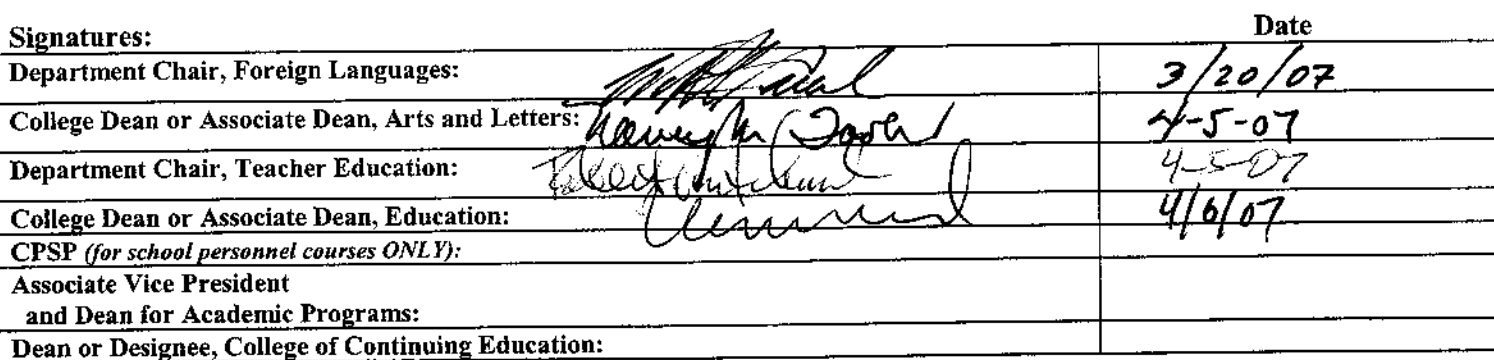 Signatures: Date
Department Chair, Foreign Languages: 3/20/07
College Dean or Associate Dean, Arts and Letters: 4-5-07
Department Chair, Teacher Education: 4-5-07
College Dean or Associate Dean, Education: 4/6/07
CPSP (for school personnel courses ONLY):
Associate Vice President
and Dean for Academic Programs:
Dean or Designee, College of Continuing Education: